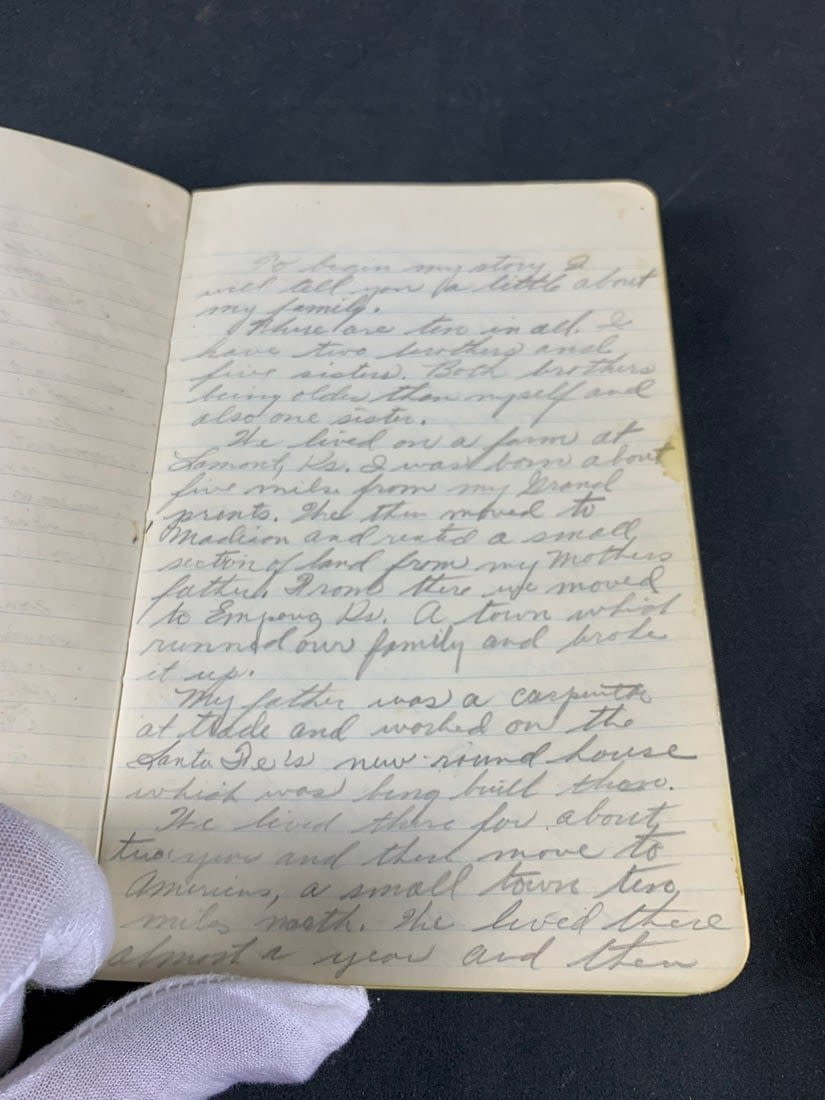 To begin my story I
will tell you a little about
my family.
There are ten in all. I
have two brothers and
five sisters. Both brothers
being older than myself and
also one sister.
We lived on a farm at
Lamont, Ks. I was born about
five mile from my Grand
prents. We then moved to
Madison and rented a small
section of land from my Mothers
father. From there we moved
to Emporia Ks. A town which
runned our family and broke
it up.
My father was a carpenter
at trade and worked on the
Santa Fe's new round house
which was being built there.
We lived there for about
two year and then move to
Americus, a small town ten
miles north. We lived there
almost a year and then